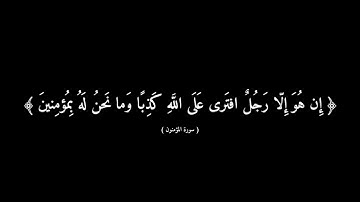 ﴿ إِن هُوَ إِلّا رَجُلٌ افتَرى عَلَى اللَّهِ كَذِبًا وَما نَحنُ لَهُ بِمُؤمِنينَ ﴾
( سورة المؤمنون )